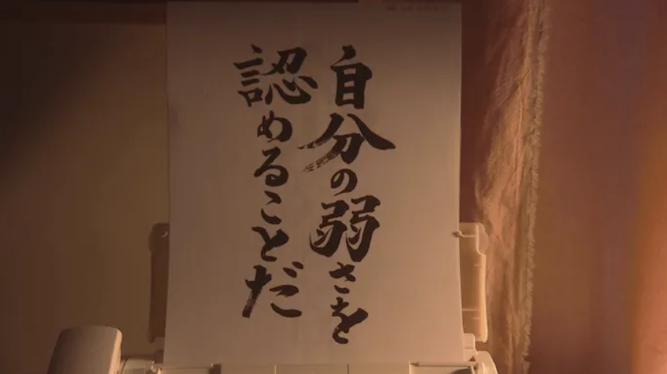 自分の弱さを
認めることだ